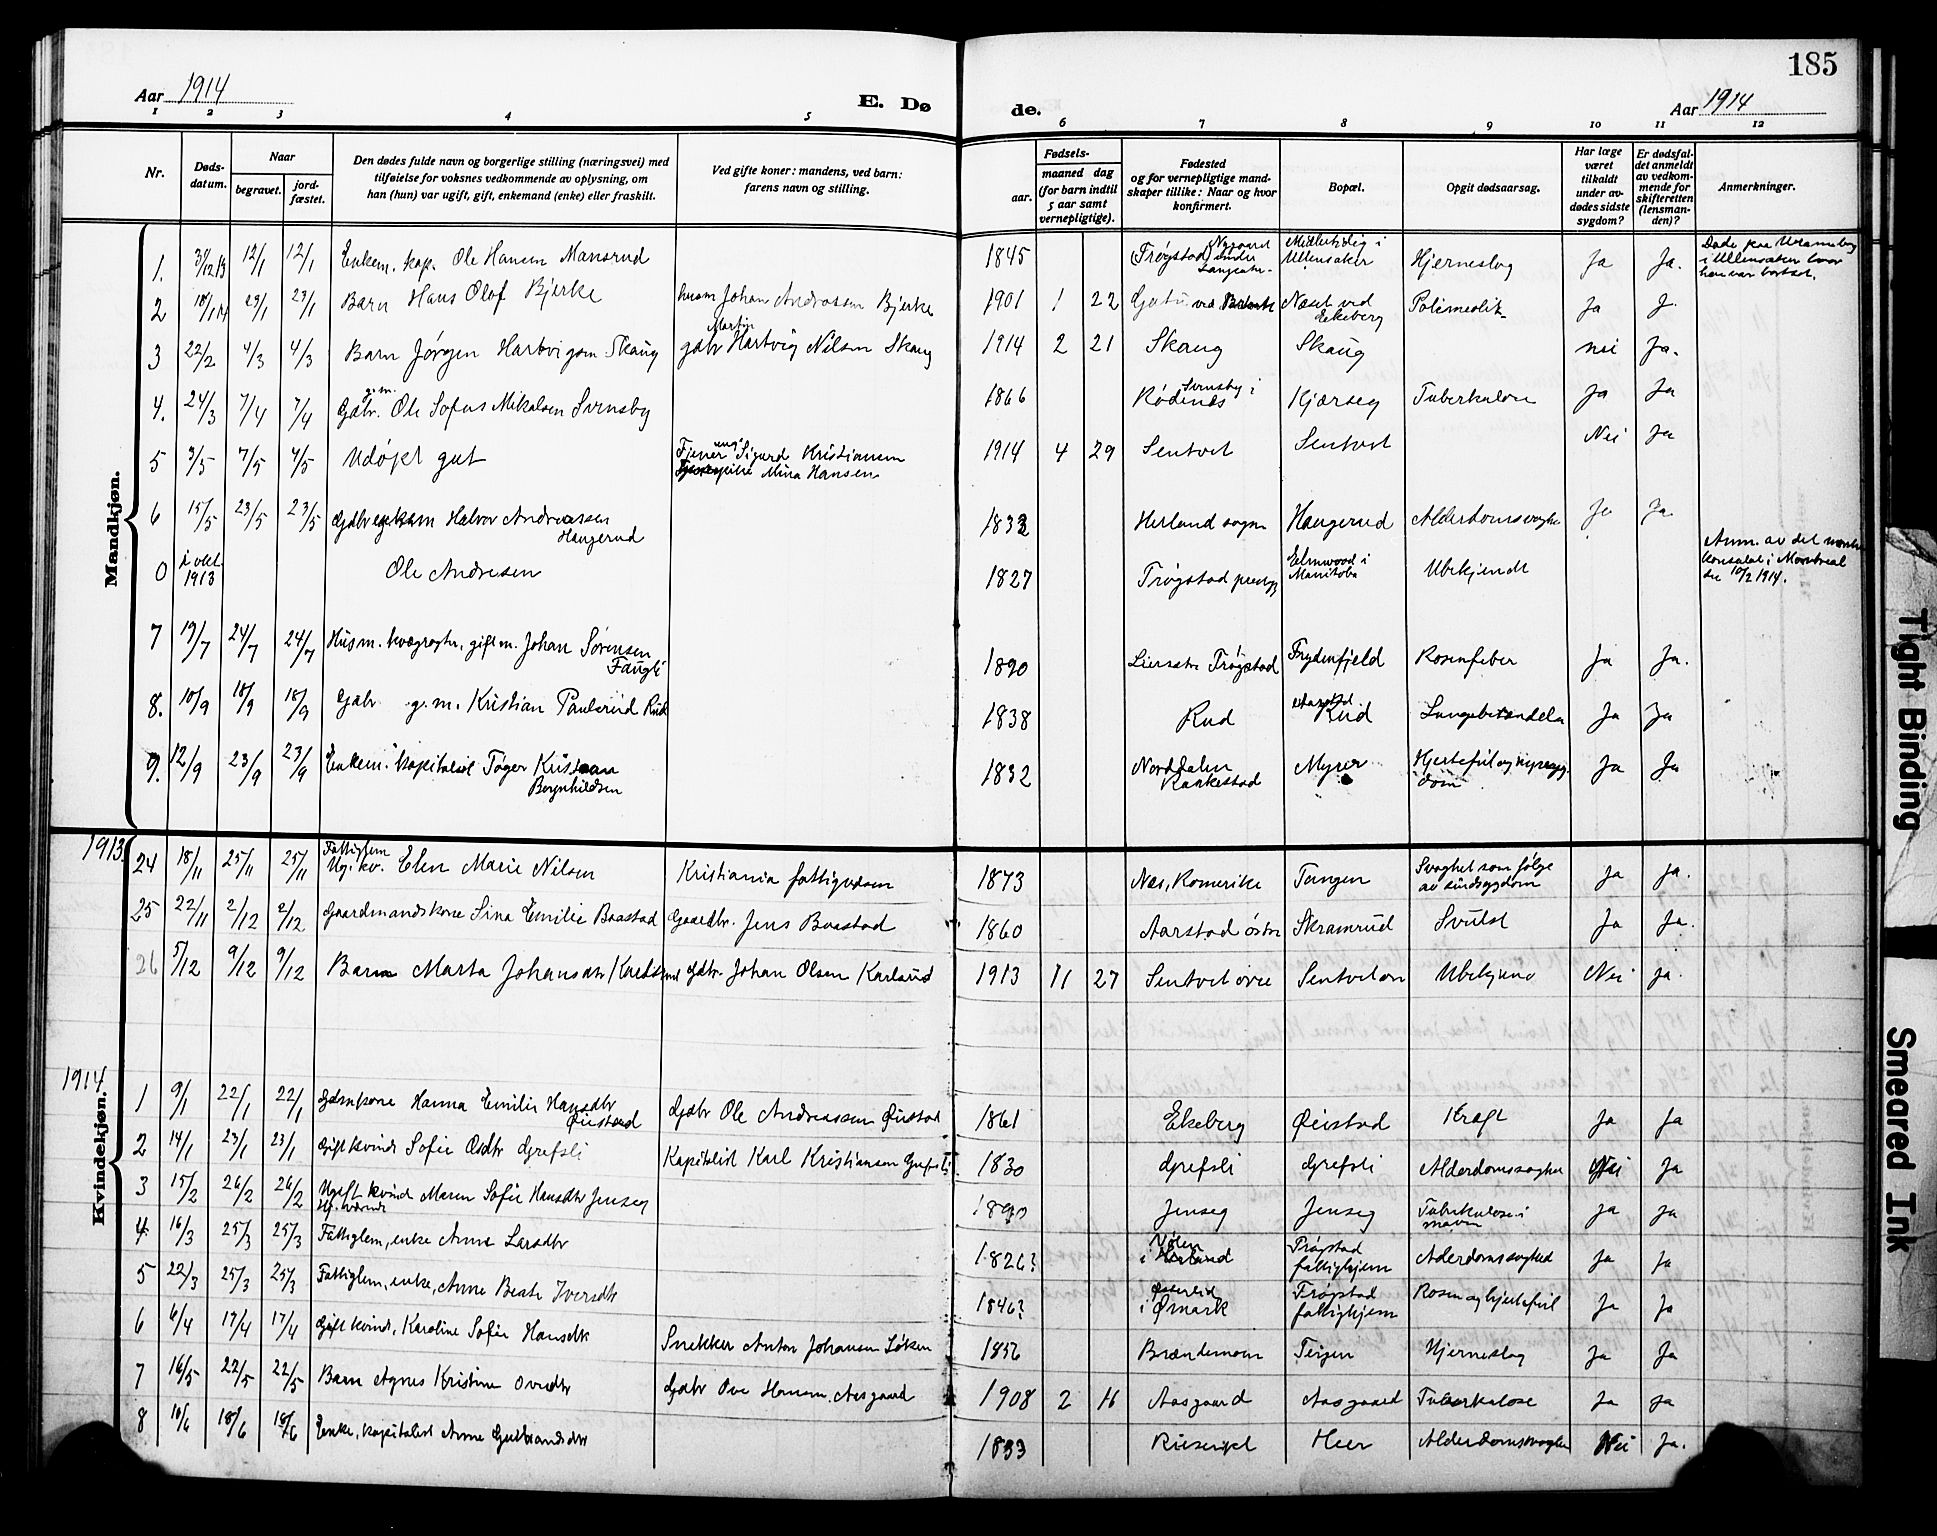 185
Aar 1914
E. Dø
de.
Aar 1914
1 2 3 4 5 6 7 8 9 10 11 12
Nr.
Døds-
datum.
Naar
begravet.
jord-
fæstet.
Den dødes fulde navn og borgerlige stilling (næringsvei) med
tilføielse for voksnes vedkommende av oplysning, om
han (hun) var ugift, gift, enkemand (enke) eller fraskilt.
Ved gifte koner: mandens, ved barn:
farens navn og stilling.
Fødsels-
aar.
maaned dag
(for barn indtil
5 aar samt
vernepligtige).
Fødested
og for vernepligtige mand-
skaper tillike: Naar og hvor
konfirmert.
Bopæl.
Opgit dødsaarsag.
Har læge
været
tilkaldt
under av-
dødes sidste
sygdom?
Er dødsfal-
det anmeldt
av vedkom-
mende for
skifteretten
(lensman-
den)?
Anmerkninger.
Mandkjøn.
1. 31/12 13 12/1 12/1 Enkem. kap. Ole Hansen Mansrud 1845 Trøgstad Ullensaker Hjerneslag Ja Ja.
i Ullensaker hvor
han var bortsat.
2 18/1 14 29/1 29/1 Barn Hans Olaf Bjerke husm Johan Andreassen Bjerke 1901 1 22 ved Næset ved Ekeberg Ja J.
3 22/2 4/3 4/3 Barn Jørgen Hartvigsen Skaug gdbr Martin Hartvig Nilsen Skaug 1914 2 21 Skaug Skaug nei Ja.
4. 24/3 7/4 7/4 Gdbr. g.m. Ole Sofus Mikalsen Svensby 1866 Svensby i Rødenes Kjærseg Tuberkulose Ja Ja
5 3/5 7/5 7/5 Udøpt gut Sigurd Kristiansen
Mina Hansen 1914 4 29 Sentvet Sentvet Nei Ja
6 15/5 23/5 23/5 Halvor Andreassen
Haugerud 1832 Herland sogn Haugerud Alderdomssvaghet Ja Ja.
0 i okt.
1913 Ole Andresen 1827 Trøgstad prestgj Elmwood i
Manitoba Ubekjendt Anm. av det norske
konsulat i Montreal
den 10/2 1914.
7 19/7 24/7 24/7 Husm. kvægrøgter, gift m. Johan Sørensen
Faugli 1890 Trøgstad Frydenfjeld Rosenfeber Ja Ja.
8. 10/9 18/9 18/9 Gdbr g.m. Kristian Paulsrud Rud 1838 Rud Rud Lungebetændelse Ja Ja
9. 12/9 23/9 23/9 Enkem. kapitalist Tøger Kristian
Borgnhildsen 1832 Norddalen
Rakkestad Myrer Hjertefeil og nyresyg-
dom Ja Ja
1913
24 18/11 25/11 25/11 Fattiglem
Ug. kv. Elen Marie Nilsen Kristiania fattigvæsen 1873 Næs, Romerike Tangen Svaghet som følge
av sindssygdom Ja Ja.
25 22/11 2/12 2/12 Gaardmandskone Sina Emilie Baastad Gaardbr. Jens Baastad 1860 Aarstad østre Skramrud Svulst Ja Ja.
26 5/12 9/12 9/12 Barn Marta Johansdtr Karlsrud Gdbr. Johan Olsen Karlsrud 1913 11 27 Sentvet øvre Sentvet øv Ubekjend Nei Ja.
1914
Kvindekjøn.
1 9/1 22/1 22/1 Gdmkone Hanna Emilie Hansdtr
Øistad Gdbr Ole Andreassen Øistad 1861 Ekeberg Øeistad Kræft Ja Ja
2 14/1 23/1 23/1 Gift kvinde Sofie Olsdtr Grefsli Kapitalist Karl Kristiansen Grefsli 1830 Grefsli Grefsli Alderdomssvaghet Nei Ja
3 15/2 26/2 26/2 Ugift kvinde Maren Sofie Hansdtr Jenseg 1890 Jenseg Jenseg Tuberkulose i
maven Ja Ja
4 16/3 25/3 25/3 Fattiglem, enke Anne Larsdtr 1826? i Herland Trøgstad
fattighjem Alderdomssvaghed Ja Ja
5 22/3 25/3 25/3 Fattiglem, enke, Anne Beate Iversdtr 1846? i Ømark Trøgstad
fattighjem Rosen og hjertefeil Ja Ja
6 6/4 17/4 17/4 Gift kvinde, Karoline Sofie Hansdtr Snekker Anton Johansen Løken 1856 Brændemoen Teigen Hjerneslag Ja Ja
7 16/5 22/5 22/5 Barn Agnes Kristine Ovedtr Gdbr Ove Hansen Aasgaard 1908 2 16 Aasgaard Aasgaard Tuberkulose Ja Ja
8 10/6 18/6 18/6 Enke, kapitalist Anne Gulbrandsdtr 1833 Heer Alderdomssvaghet Nei Ja.
Tight Binding
Smeared Ink